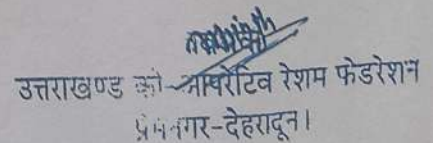 उत्तराखण्ड को-आपरेटिव रेशम फेडरेशन
प्रेमनगर-देहरादून।